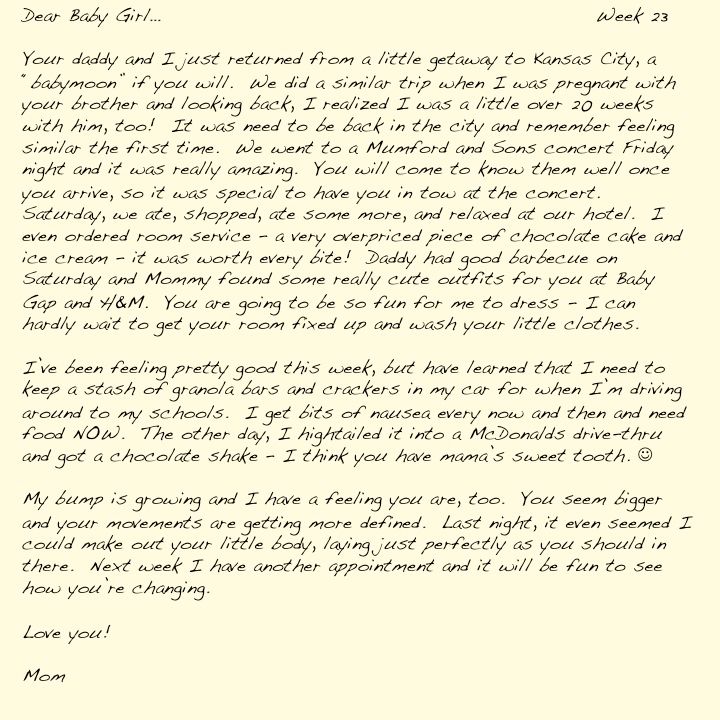 Dear Baby Girl... Week 23
Your daddy and I just returned from a little getaway to Kansas City, a
"babymoon" if you will. We did a similar trip when I was pregnant with
your brother and looking back, I realized I was a little over 20 weeks
with him, too! It was need to be back in the city and remember feeling
similar the first time. We went to a Mumford and Sons concert Friday
night and it was really amazing. You will come to know them well once
you arrive, so it was special to have you in tow at the concert.
Saturday, we ate, shopped, ate some more, and relaxed at our hotel. I
even ordered room service - a very overpriced piece of chocolate cake and
ice cream - it was worth every bite! Daddy had good barbecue on
Saturday and Mommy found some really cute outfits for you at Baby
Gap and H&M. You are going to be so fun for me to dress - I can
hardly wait to get your room fixed up and wash your little clothes.
I've been feeling pretty good this week, but have learned that I need to
keep a stash of granola bars and crackers in my car for when I'm driving
around to my schools. I get bits of nausea every now and then and need
food NOW. The other day, I hightailed it into a McDonalds drive-thru
and got a chocolate shake - I think you have mama's sweet tooth. ☺
My bump is growing and I have a feeling you are, too. You seem bigger
and your movements are getting more defined. Last night, it even seemed I
could make out your little body, laying just perfectly as you should in
there. Next week I have another appointment and it will be fun to see
how you're changing.
Love you!
Mom